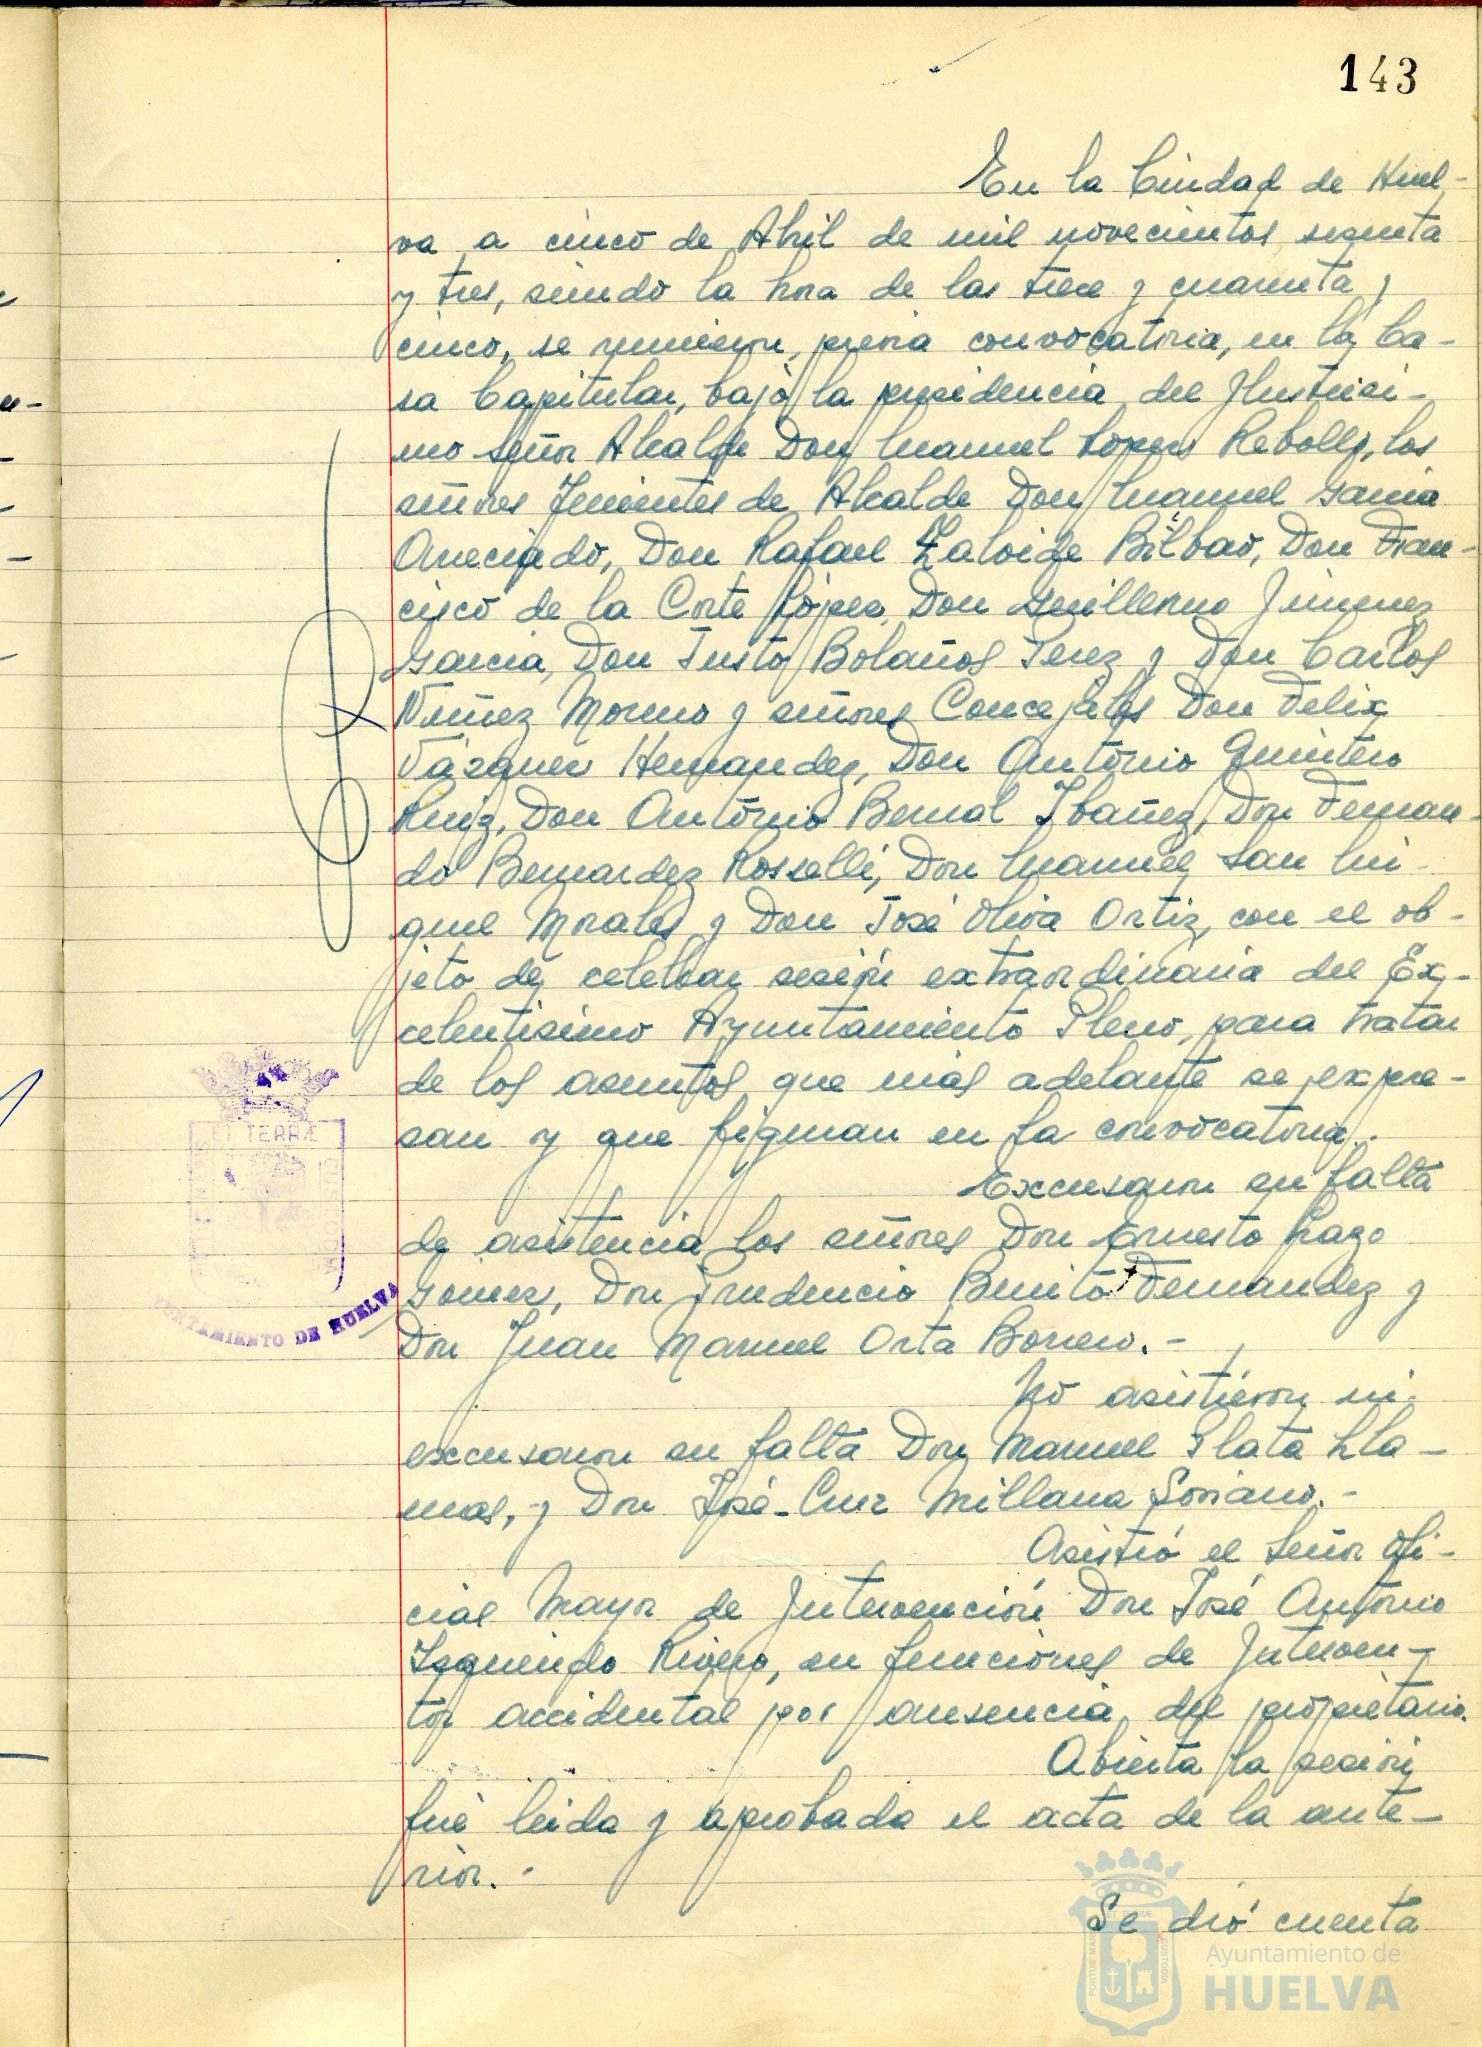 143
En la Ciudad de Huel-
va a cinco de Abril de mil novecientos sesenta
y tres, siendo la hora de las trece y cuarenta y
cinco, se reunieron, previa convocatoria, en la Ca-
sa Capitular, bajo la presidencia del Ilustrisi-
mo Señor Alcalde Don Manuel Lopez Rebollo, los
señores Tenientes de Alcalde Don Manuel Garcia
Arreciado, Don Rafael Zalvide Bilbao, Don Fran-
cisco de la Corte López, Don Guillermo Jimenez
Garcia, Don Justo Bolaños Perez y Don Carlos
Nuñez Moreno y señores Concejales Don Felix
Vázquez Hernandez, Don Antonio Quintero
Ruiz, Don Antonio Bernal Ibañez, Don Fernan-
do Bernardez Rosselli, Don Manuel San Mi-
guel Morales y Don José Oliva Ortiz, con el ob-
jeto de celebrar sesión extraordinaria del Ex-
celentisimo Ayuntamiento Pleno, para tratar
de los asuntos que mas adelante se expre-
san y que figuran en la convocatoria.-
Excusaron su falta
de asistencia los señores Don Ernesto Lazo
Gomez, Don Prudencio Benito Fernandez y
Don Juan Manuel Orta Borrero.-
No asistieron ni
excusaron su falta Don Manuel Plata Lla-
mas, y Don José-Cruz Millana Soriano.-
Asistió el Señor Ofi-
cial Mayor de Intervención Don José Antonio
Izquierdo Rivero, en funciones de Interven-
tor accidental por ausencia del propietario.
Abierta la sesión
fué leida y aprobada el acta de la ante-
rior.-
Se dió cuenta
ET TERRÆ
CUSTODIA
AYUNTAMIENTO DE HUELVA
PORTUS MARIS
ET TERRÆ
CUSTODIA
Ayuntamiento de
HUELVA